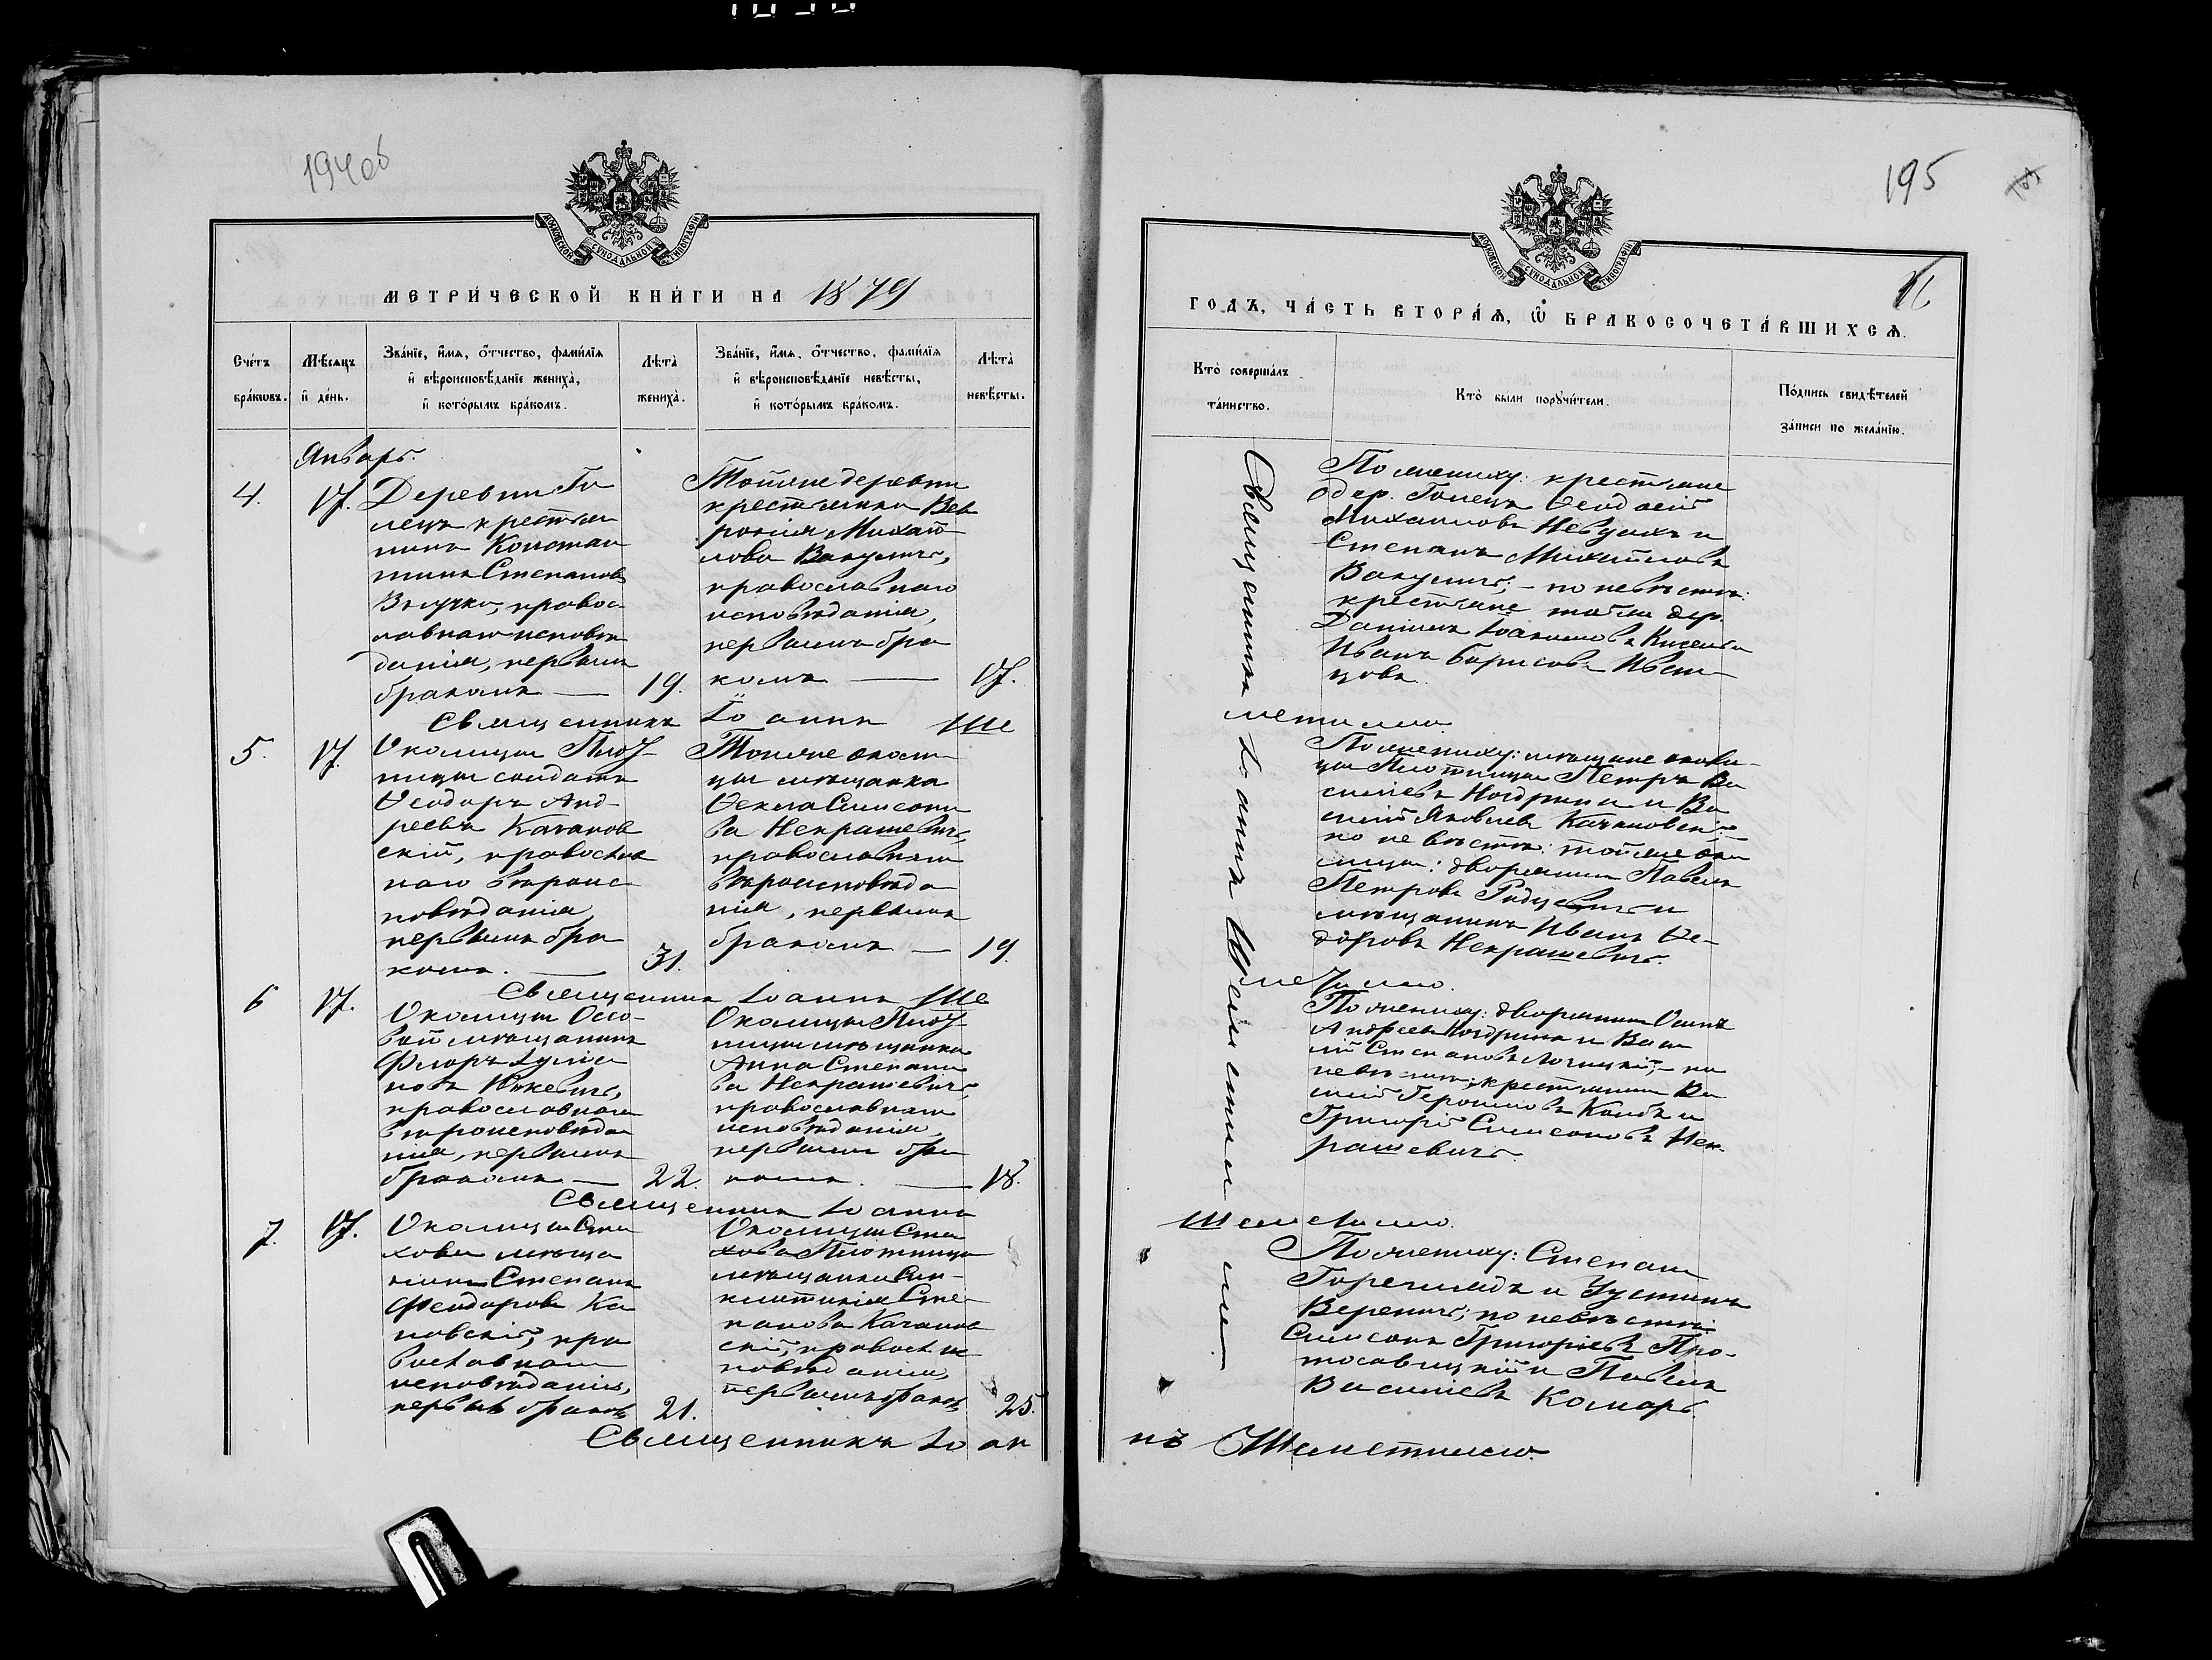 194об
МОСКОВСКОЙ СУНОДАЛЬНОЙ ТИПОГРАФІИ
МЕТРИ́ЧЕСКОЙ КНИ́ГИ НА 1879
Сче́тъ бра́кѡвъ.
Мѣ́сяцъ и҆ де́нь.
Зва́нїе, и҆́мѧ, ѻ҆́тчество, фами́лїѧ
и҆ вѣроисповѣ́данїе жениха̀,
и҆ кото́рымъ бра́комъ.
Лѣта̀ жениха̀.
Зва́нїе, и҆́мѧ, ѻ҆́тчество, фами́лїѧ
и҆ вѣроисповѣ́данїе невѣ́сты,
и҆ кото́рымъ бра́комъ.
Лѣта̀ невѣ́сты.
Январь.
4.
17.
Деревни Го
лецъ крестья
нинъ Констан
тинъ Степановъ
правос
лавнаго исповѣ
данія, первымъ
бракомъ —
19.
Тойже деревни
крестьянка Вев
ронія Михай
лова Вакуличъ,
православнаго
исповѣданія,
первымъ бра
комъ —
17.
Священникъ Іоаннъ Ше
5.
17.
Околицы Плот
ницы солдатъ
Ѳеодоръ Анд-
реевъ Качанов
скій, православ
наго вѣроис
повѣданія,
первымъ бра
комъ. —
31.
Тойже околи
цы мѣщанка
Ѳекла Симеоно
ва Некрашевичъ,
православнаго
вѣроисповѣда
нія, первымъ
бракомъ —
19.
Священникъ Іоаннъ Ше
6
17.
Околицы Осо-
вой мѣщанинъ
Флоръ Іуліа
новъ
православнаго
вѣроисповѣда
нія, первымъ
бракомъ —
22.
Околицы Плот
ницы мѣщанка
Анна Степано
ва Некрашевичъ,
православнаго
исповѣданія,
первымъ бра
комъ. —
18.
Священникъ Іоаннъ
7.
17.
Околицы Ста
хова мѣща
нинъ Степанъ
Феодоровъ Ка
новскій, пра
вославнаго
исповѣданія,
первымъ бракомъ
21.
Околицы Ста
хова Плотницы
мѣщанка Син-
клитикія Сте-
панова Каганов
скій, правосл. ис
повѣданія,
первымъ бракомъ
25.
Священникъ Іоан
195
МОСКОВСКОЙ СУНОДАЛЬНОЙ ТИПОГРАФІИ
ГОДЪ, ЧА́СТЬ ВТОРА́Ѧ, Ѡ҆ БРАКОСОЧЕТА́ВШИХСѦ.
Кто̀ соверша́лъ та́инство.
Кто̀ бы́ли порꙋчи́тели.
По́дпись свидѣ́телей
за́писи по жела́нїю.
Священникъ Іоаннъ Шеметилло
По жениху: крестьяне
дер. Голецъ Ѳеодосій
Михаиловъ и
Степанъ Михайловъ
Вакуличъ; — по невѣстѣ:
крестьяне тойже дер.
Даніилъ Іоакимовъ
Иванъ Борисовъ Иван-
цовъ.
метилло
По жениху: мѣщане околи-
цы Плотницы Петръ Ва
сильевъ Ноздринъ и Ва
силій Яковлевъ Качановскій —
по невѣстѣ: тойже око
лицы: дворянинъ Павелъ
Петровъ Родцевичъ и
мѣщанинъ Иванъ Ѳе-
доровъ Некрашевичъ.
метилло.
По жениху: дворянинъ Осипъ
Андреевъ Ноздринъ и Васи
лій Степановъ — по
невѣстѣ: крестьянинъ Ва
силій Герасимовъ и
Григорій Симеоновъ Нек-
рашевичъ.
Шеметилло.
По жениху: Степанъ
и Устинъ
Вереничъ; по невѣстѣ:
Симеонъ Григорьевъ Про-
тосавицкій и Павелъ
Василіевъ Комаръ.
нъ Шеметилло.